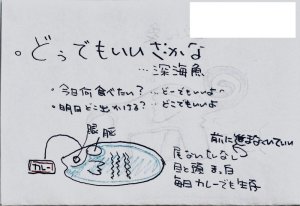 。どぅでもいいさかな
…深海魚
・今日何食べたい？…どこでもいいよ〜
・明日どこ出かける？…どこでもいいよ
眼 脳
カレー
前に進まなくていい
尾なしたいなし
目と頭 ま、白
毎日カレーでも生存